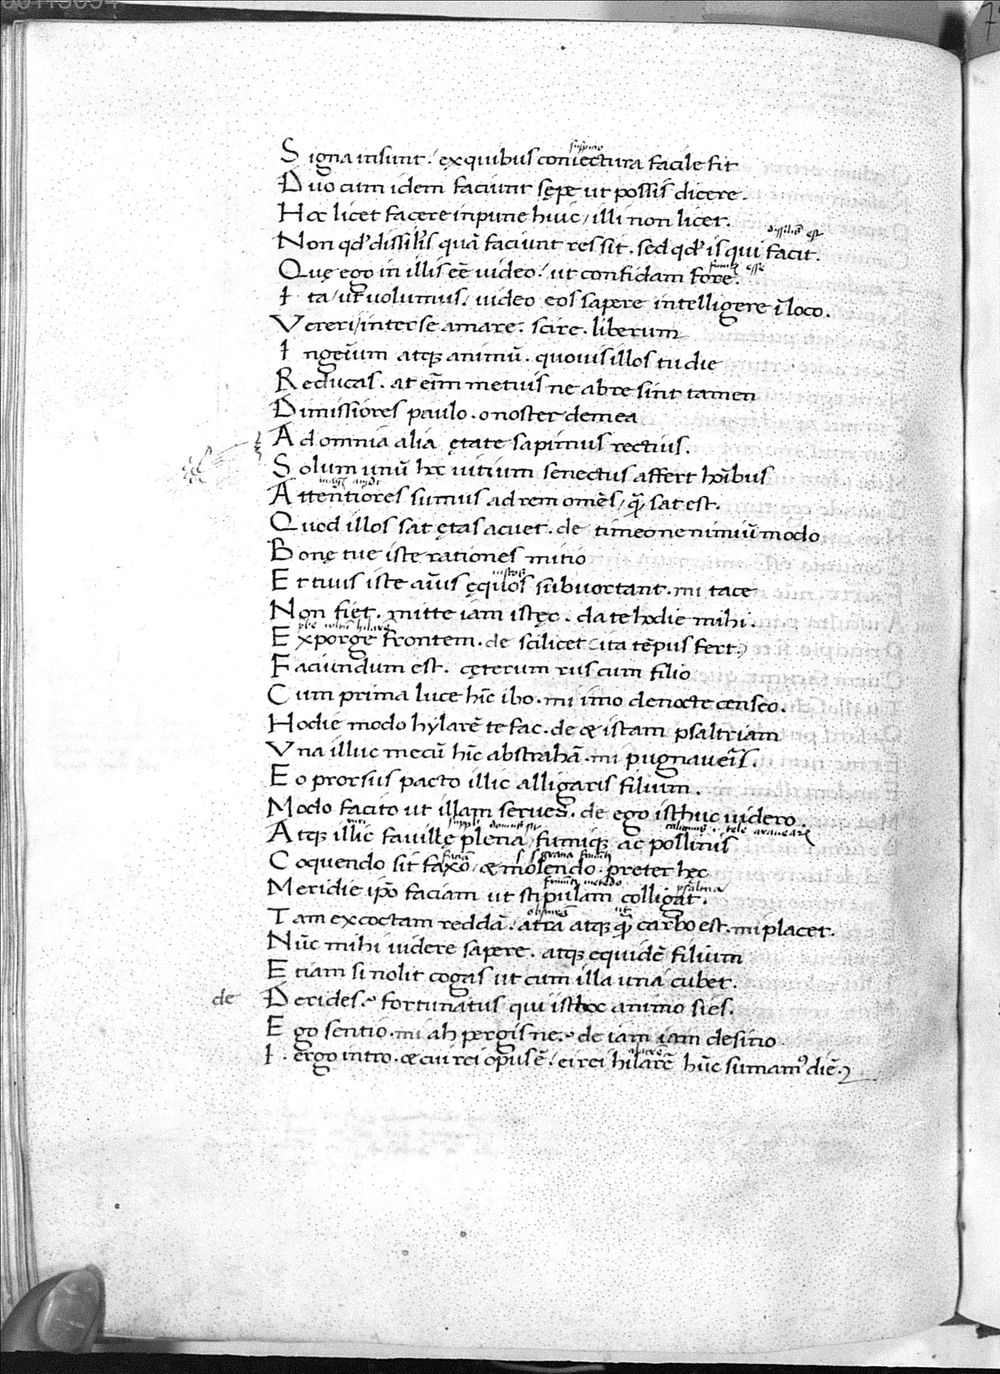 Signa insunt / ex quibus coniectura facile fit
Duo cum idem faciunt sępe ut possis dicere.
Hoc licet facere inpune huic / illi non licet.
Non qđ dissil'is quā faciunt res sit. sed qđ is qui facit.
Quę ego in illis eē uideo / ut confidam fore.
Ita / ut uolumus / uideo eos sapere intelligere ī loco.
Vereri / inter se amare : scire. liberum
Ingeuum atqꝫ animū. quouis illos tu die
Reducas. at eīm metuis ne ab re sint tamen
Dimissiores paulo. o noster demea
Ad omnia alia ętate sapimus rectius.
Solum unū hoc uitium senectus affert hoībus
Attentiores sumus ad rem omēs / q̄ sat est.
Quod illos sat ętas acuet. de timeo ne nimiū modo
Bonę tue iste rationes mitio
Et tuus iste aīus ęquos subuortant. mi tace
Non fiet. mitte iam istęc. da te hodie mihi.
Exporge frontem. de scilicet ita tēpus fert
Faciundum est. cęterum rus cum filio
Cum prima luce hīc ibo. mi imo de nocte censeo.
Hodie modo hylarē te fac. de & istam psaltriam
Vna illuc mecū hīc abstrahā. mi pugnaueīs.
Eo prorsus pacto illic alligaris filium.
Modo facito ut illam serues. de ego isthuc uidero.
Atqꝫ illic fauillę plena / fumiqꝫ ac pollinis
Coquendo sit faxo / & molendo. preter hęc
Meridie ip̄o faciam ut stipulam colligat.
Tam excoctam reddā / atrā atqꝫ q̄ carbo est. mi placet.
Nūc mihi uidere sapere. atqꝫ equidē filium
Etiam si nolit cogas ut cum illa una cubet.
de Derides. fortunatus qui isthoc animo sies.
Ego sentio. mi ah pergis ne. de iam iam desino
I. ergo intro. & cui rei opus ē / ei rei hilarē hūc sumamꝰ diē.